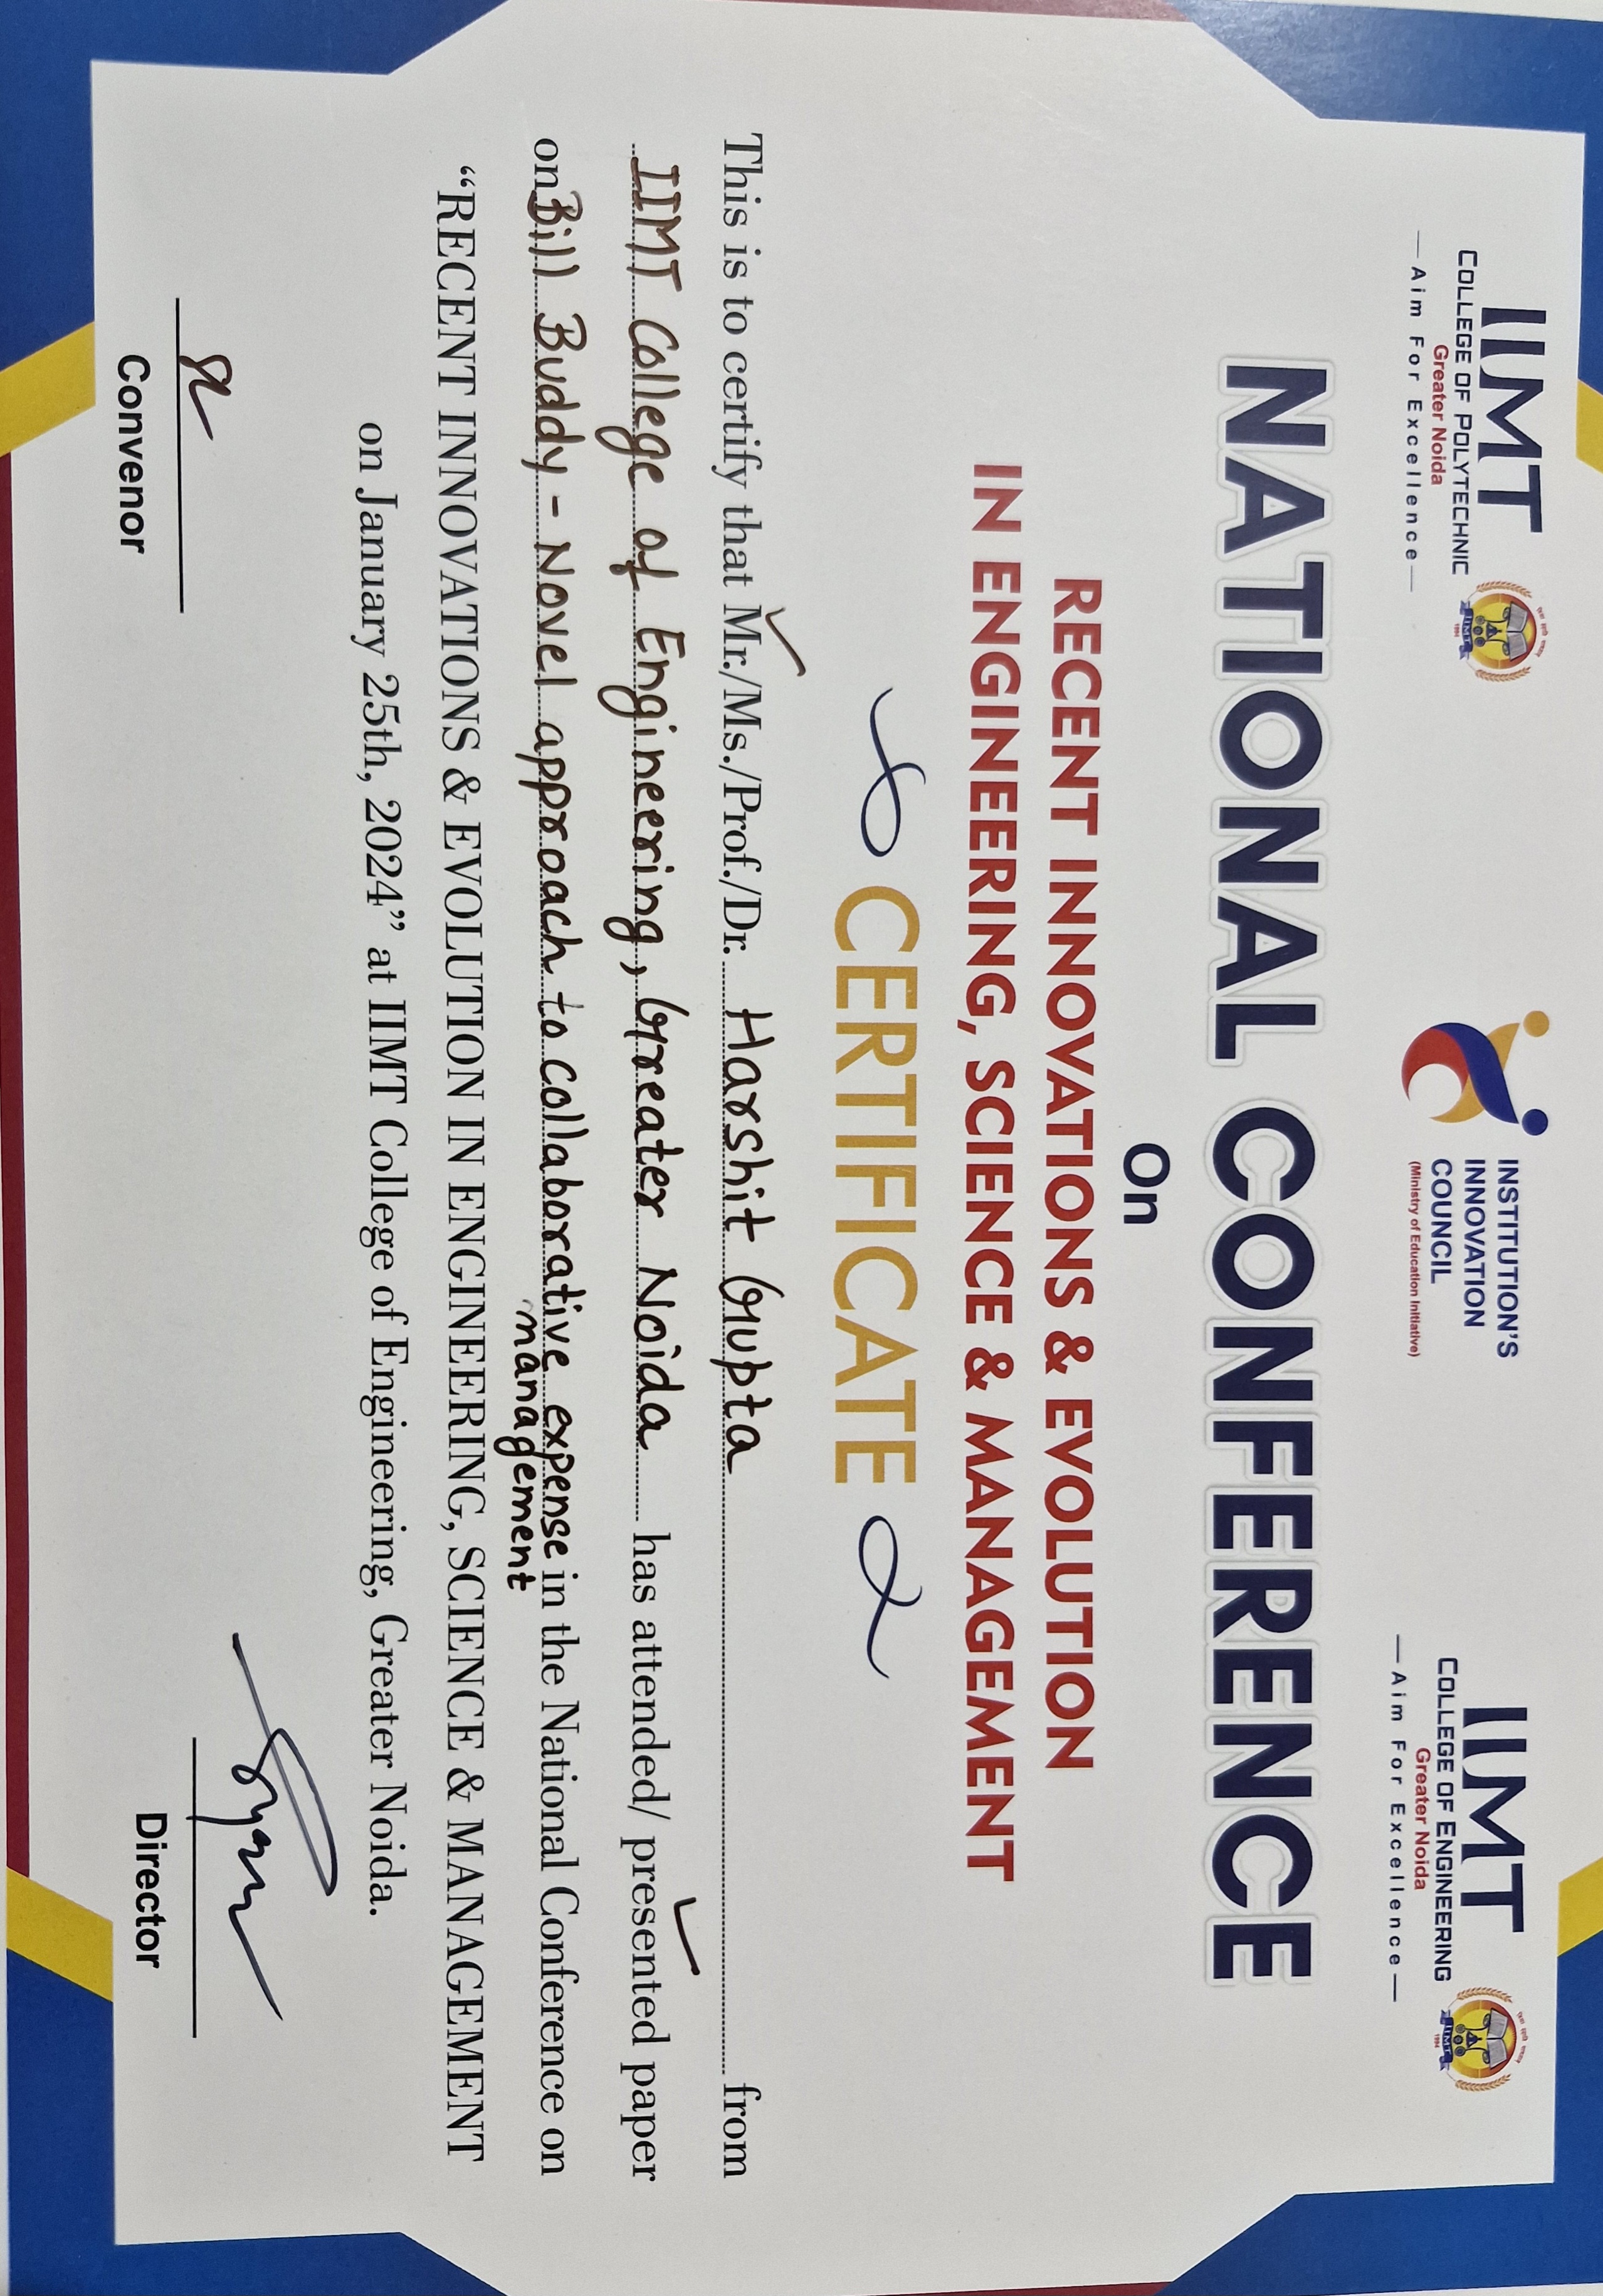 IIMT
COLLEGE OF POLYTECHNIC
Greater Noida
Aim For Excellence
INSTITUTION'S
INNOVATION
COUNCIL
(Ministry of Education Initiative)
IIMT
COLLEGE OF ENGINEERING
Greater Noida
Aim For Excellence
NATIONAL CONFERENCE
On
RECENT INNOVATIONS & EVOLUTION
IN ENGINEERING, SCIENCE & MANAGEMENT
CERTIFICATE
This is to certify that Mr./Ms./Prof./Dr. Harshit Gupta from
IIMT College of Engineering, Greater Noida has attended/ presented paper
on Bill Buddy - Novel approach to collaborative expense in the National Conference on
management
“RECENT INNOVATIONS & EVOLUTION IN ENGINEERING, SCIENCE & MANAGEMENT
on January 25th, 2024” at IIMT College of Engineering, Greater Noida.
Convenor
Director